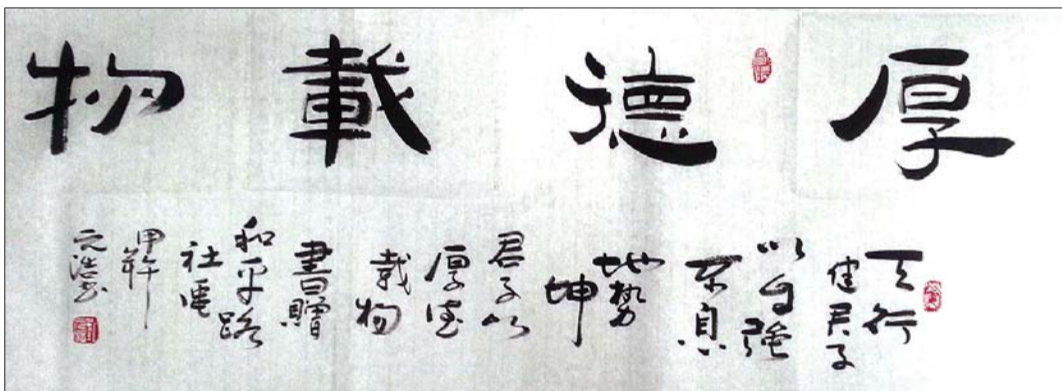 厚德載物
天行
健君子
以自强
不息
地勢
坤
君子以
厚德
載物
書贈
和平路
社區
甲午
元浩書